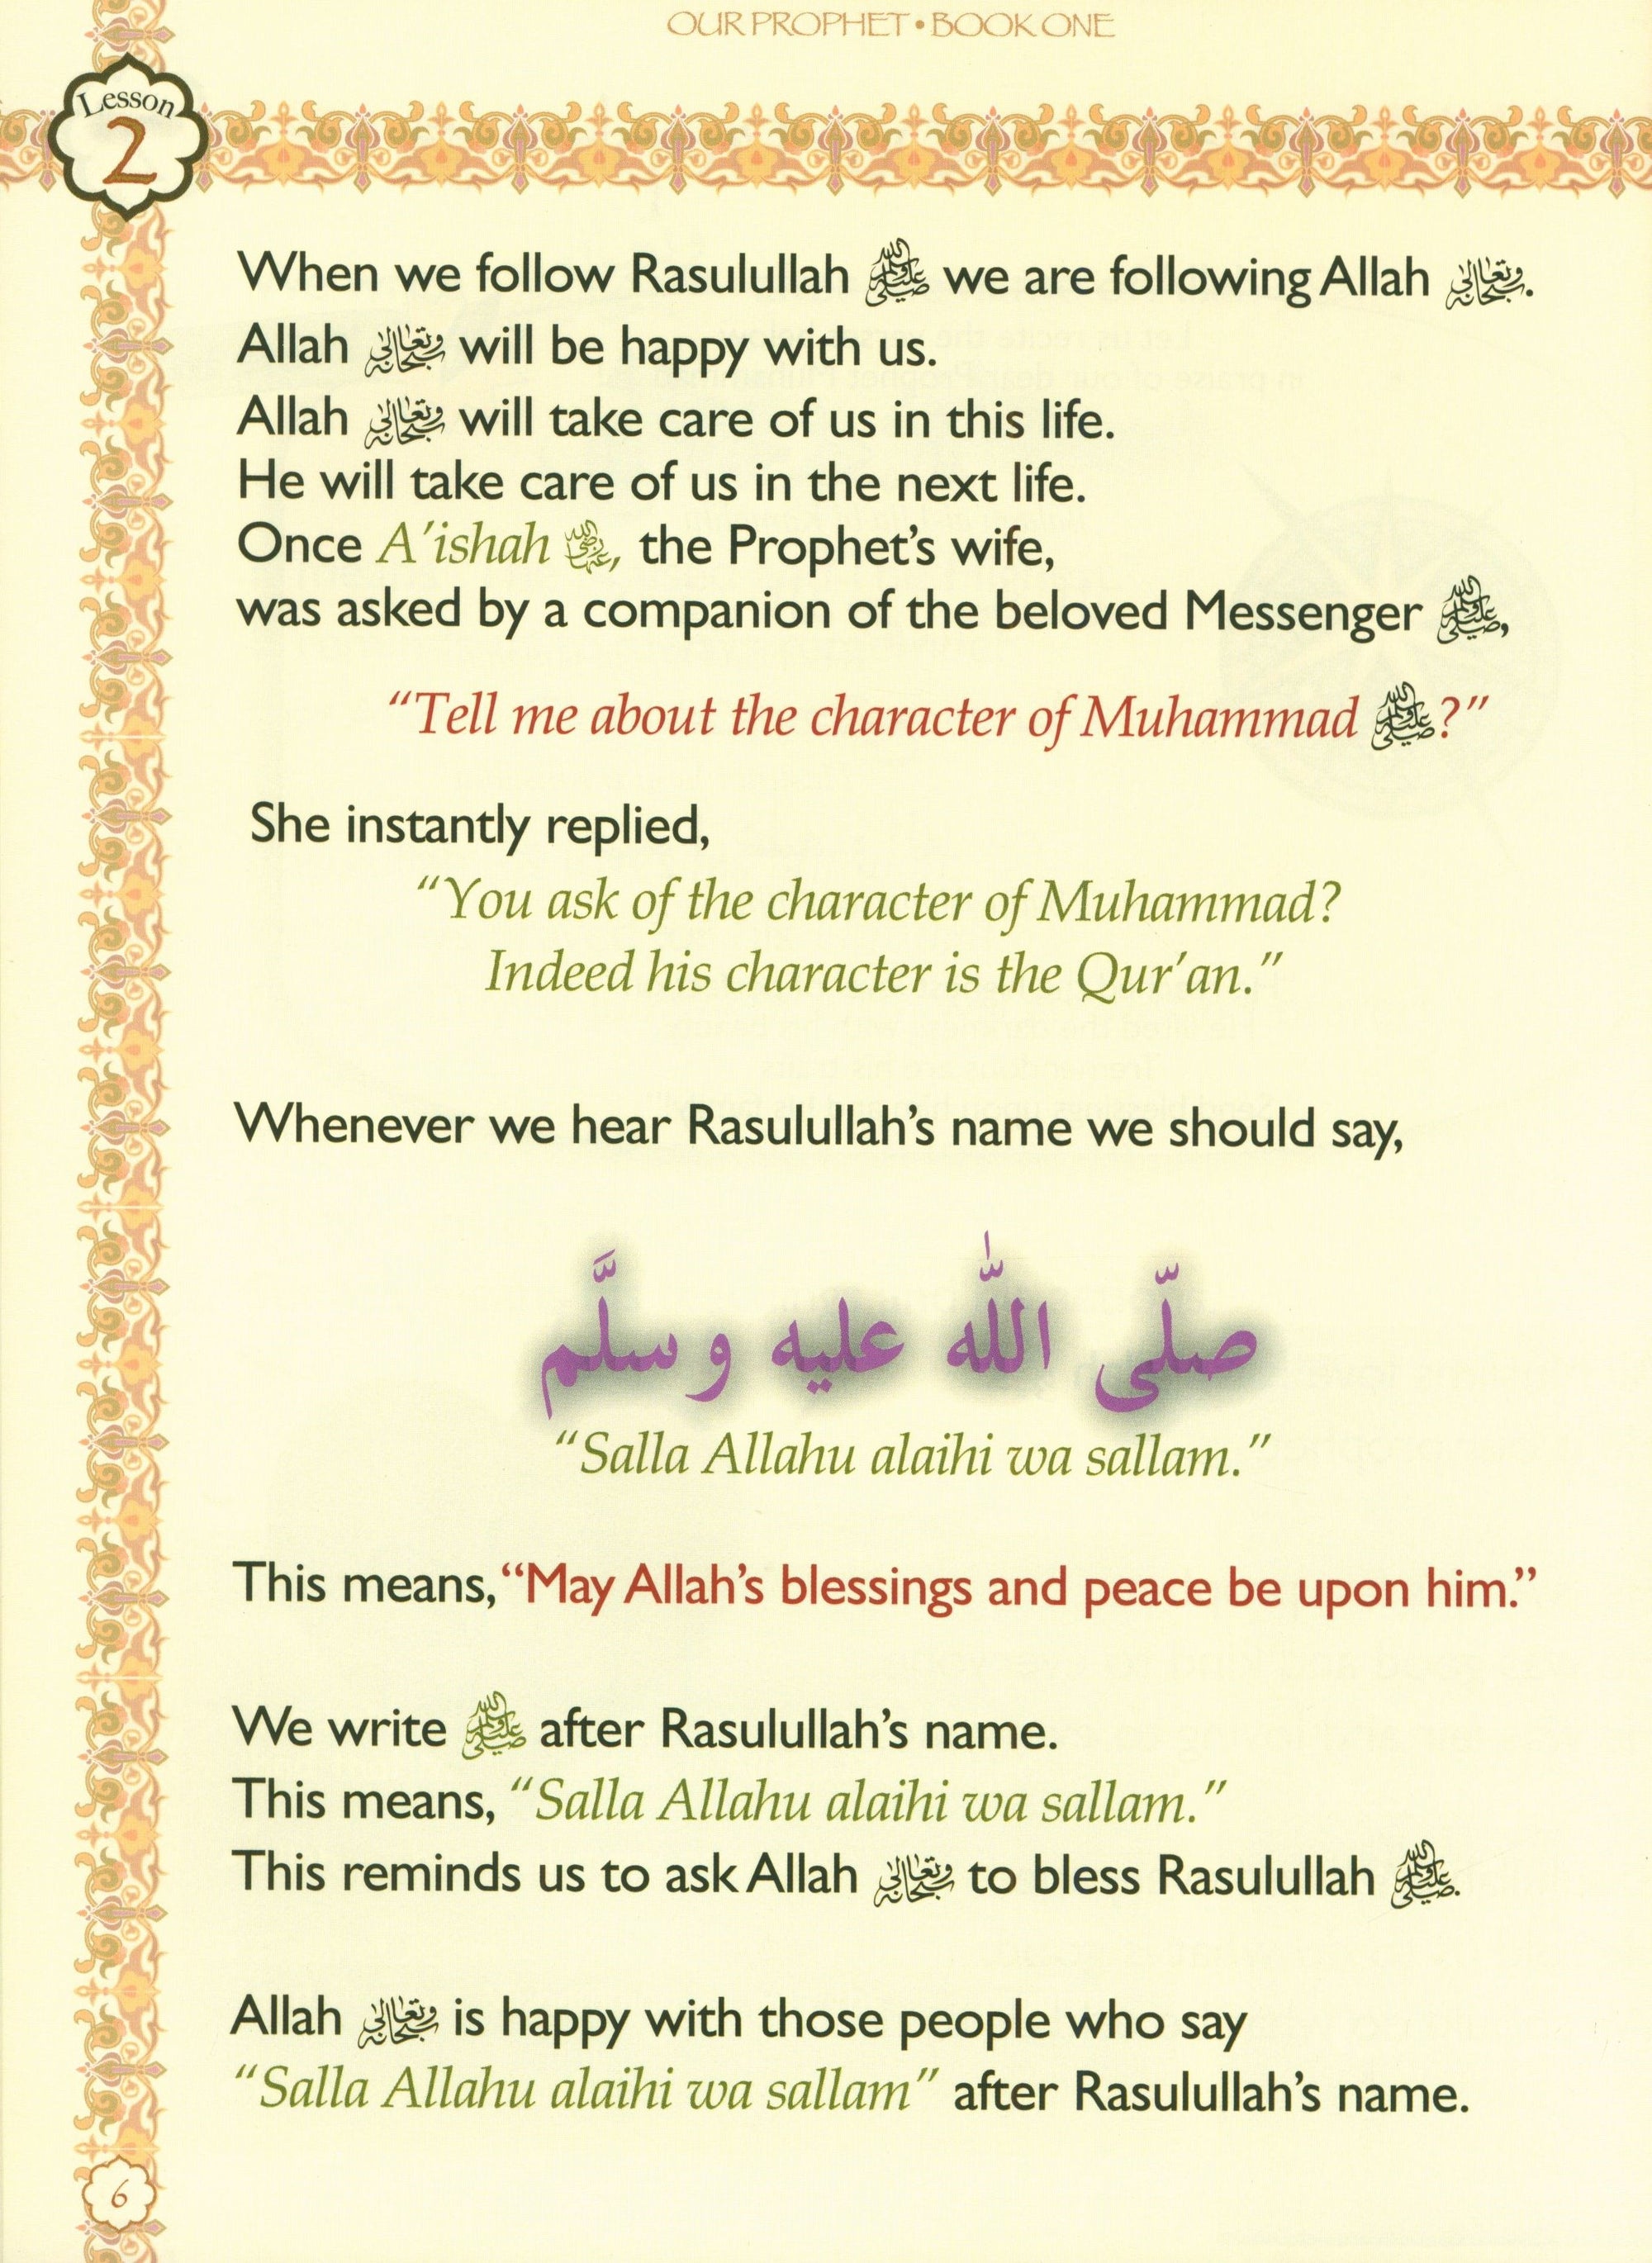 OUR PROPHET • BOOK ONE
Lesson
2
When we follow Rasulullah ﷺ we are following Allah سبحانه وتعالى.
Allah سبحانه وتعالى will be happy with us.
Allah سبحانه وتعالى will take care of us in this life.
He will take care of us in the next life.
Once A'ishah رضي الله عنها, the Prophet's wife,
was asked by a companion of the beloved Messenger ﷺ,
“Tell me about the character of Muhammad ﷺ?”
She instantly replied,
“You ask of the character of Muhammad?
Indeed his character is the Qur'an.”
Whenever we hear Rasulullah's name we should say,
صلّى اللّٰه عليه وسلَّم
“Salla Allahu alaihi wa sallam.”
This means, “May Allah's blessings and peace be upon him.”
We write ﷺ after Rasulullah's name.
This means, “Salla Allahu alaihi wa sallam.”
This reminds us to ask Allah سبحانه وتعالى to bless Rasulullah ﷺ.
Allah سبحانه وتعالى is happy with those people who say
“Salla Allahu alaihi wa sallam” after Rasulullah's name.
6